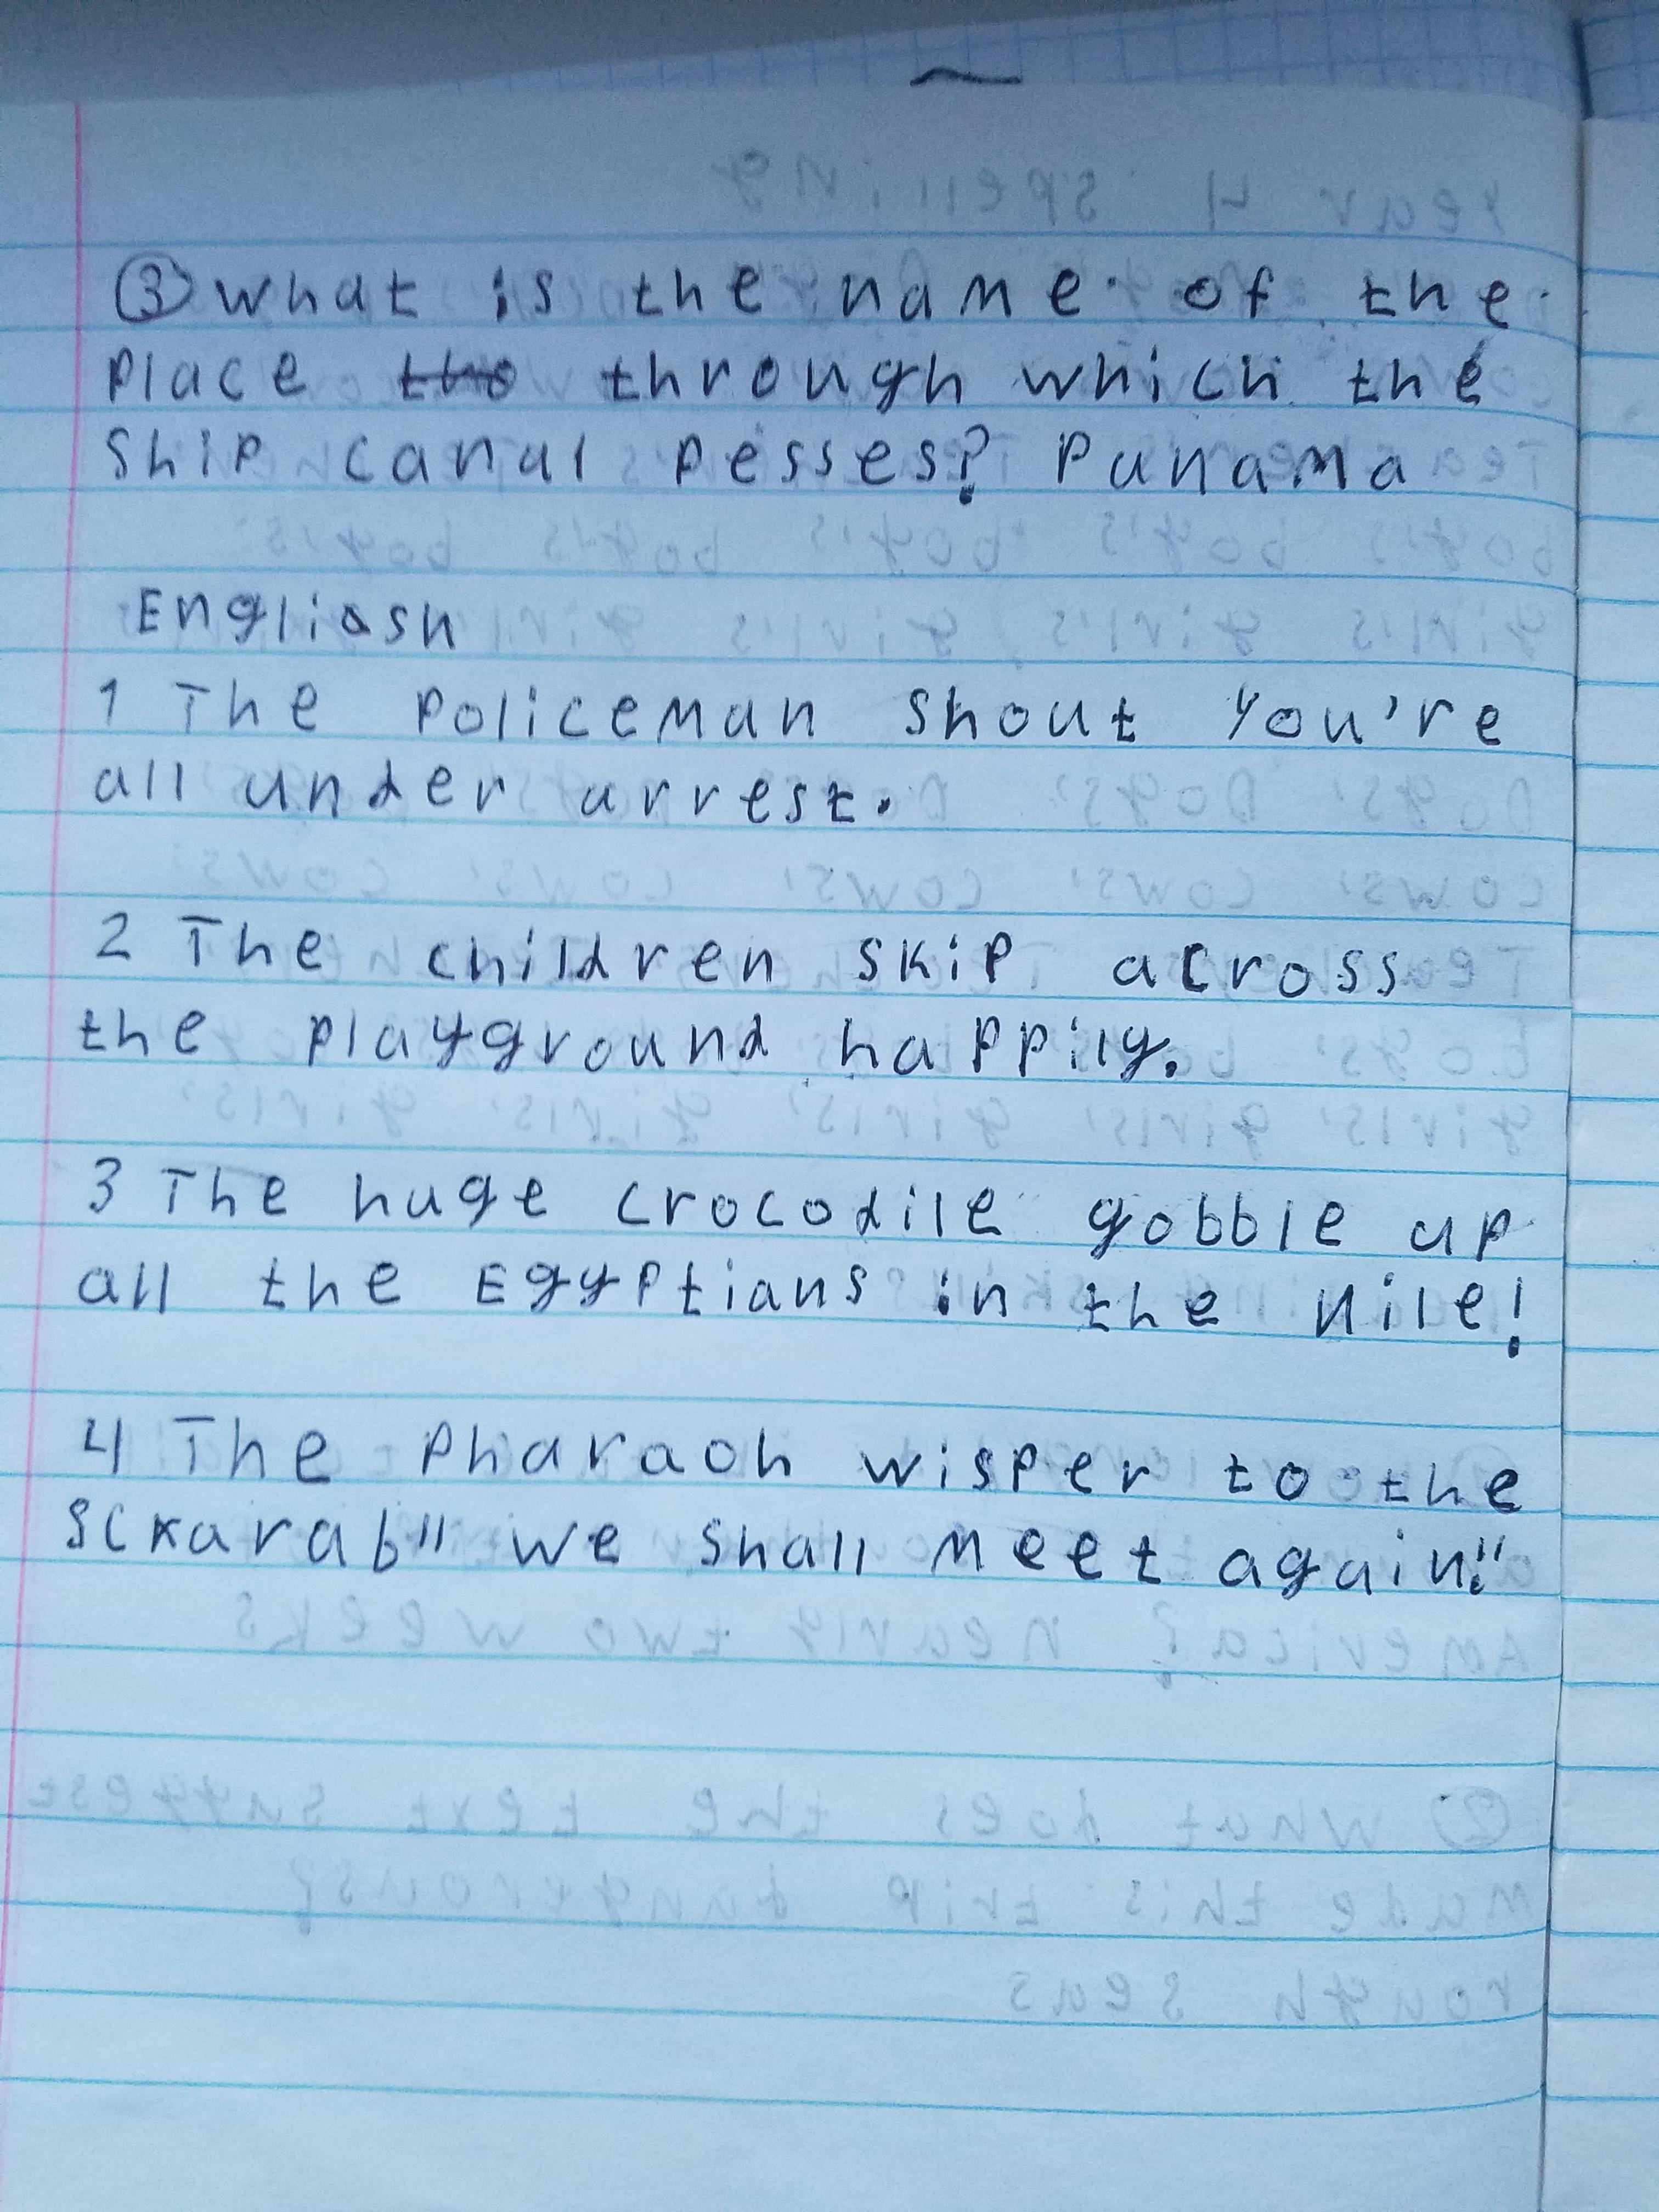 ③ what is the name of the
place tho through which the
ship canal pesses? Panama
Engliash
1 The policeman shout you're
all under arrest.
2 The children skip across
the playground happily.
3 The huge crocodile gobble up
all the Egyptians in the Nile!
4 The Pharaoh wisper to the
sckarab" we shall meet again!"